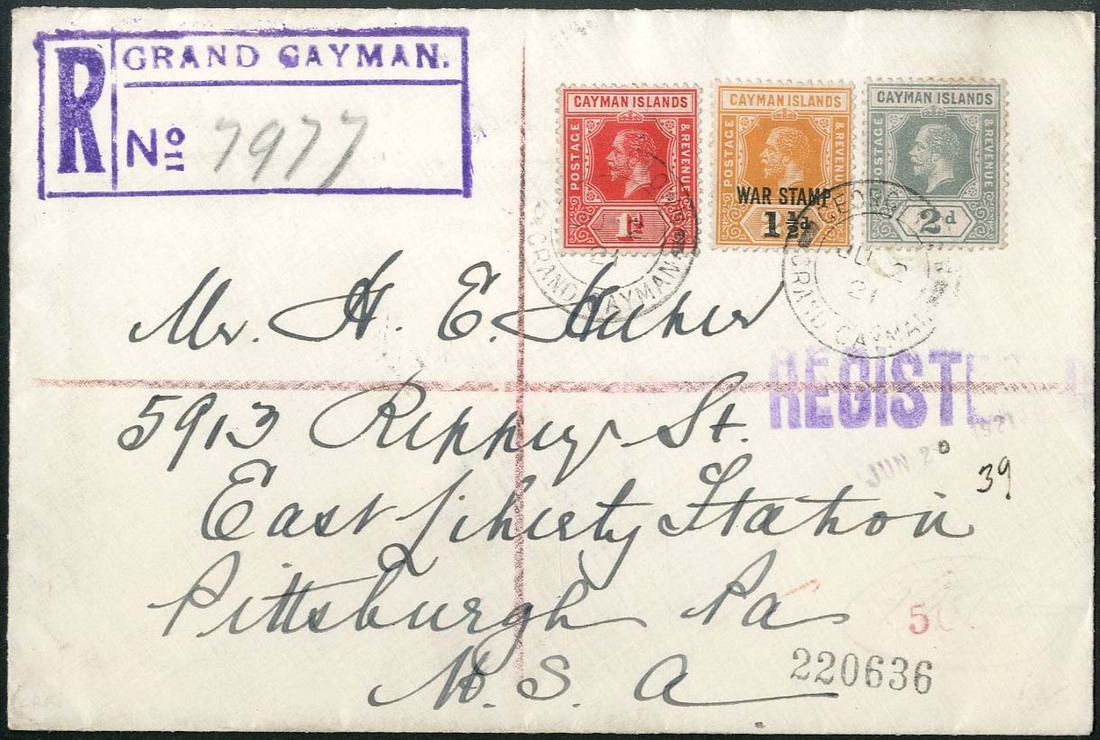 R GRAND CAYMAN.
No 7977
CAYMAN ISLANDS
POSTAGE & REVENUE
1d
CAYMAN ISLANDS
POSTAGE & REVENUE
WAR STAMP
1½d
CAYMAN ISLANDS
POSTAGE & REVENUE
2d
21
GRAND CAYMAN
JU
21
GRAND CAYMAN
Mr. H. E. Huber
5913 Rippey St.
East Liberty Station
Pittsburgh Pa
U. S. A
REGISTE
JUN 20 1921
39
220636